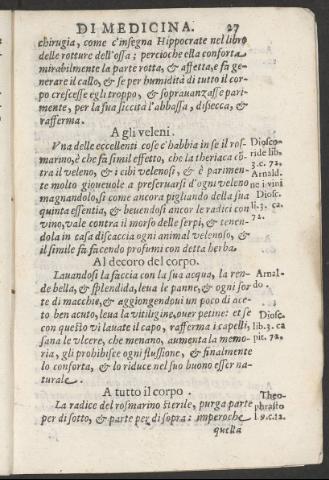 DI MEDICINA. 27
chirugia, come c'insegna Hippocrate nel libro
delle rotture dell'ossa; percioche ella conforta
mirabilmente la parte rotta, & affetta, e fa ge-
nerare il callo, & se per humidità di tutto il cor-
po crescesse egli troppo, & soprauanzasse pari-
mente, per la sua siccità l'abbassa, disecca, &
rafferma.
A gli veleni.
Vna delle eccellenti cose c'habbia in se il ros-
marino, è che fa simil effetto, che la theriaca cō-
tra il veleno, & i cibi velenosi, & è parimen-
te molto gioueuole a preseruarsi d'ogni veleno
magnandolo, si come ancora pigliando della sua
quinta essentia, & beuendosi ancor le radici con
vino, vale contra il morso delle serpi, & tenen-
dola in casa discaccia ogni animal velenoso, &
il simile fa facendo profumi con detta herba.
Diosco-
ride lib.
3. c. 72.
Arnald.
ne i vini
Diosc.
li. 3. ca.
72.
Al decoro del corpo.
Lauandosi la faccia con la sua acqua, la ren-
de bella, & splendida, leua le panne, & ogni sor
te di macchie, & aggiongendoui un poco di ace-
to ben acuto, leua la vitiligine, ouer petine: et se
con questo vi lauate il capo, rafferma i capelli,
sana le vlcere, che menano, aumenta la memo-
ria, gli prohibisce ogni flussione, & finalmente
lo conforta, & lo riduce nel suo buono esser na-
turale.
Arnal-
do.
Diosc.
lib. 3. ca
pit. 72.
A tutto il corpo.
La radice del rosmarino sterile, purga parte
per di sotto, & parte per di sopra: imperoche
Theo-
phrasto
l. 9. c. 12.
quella